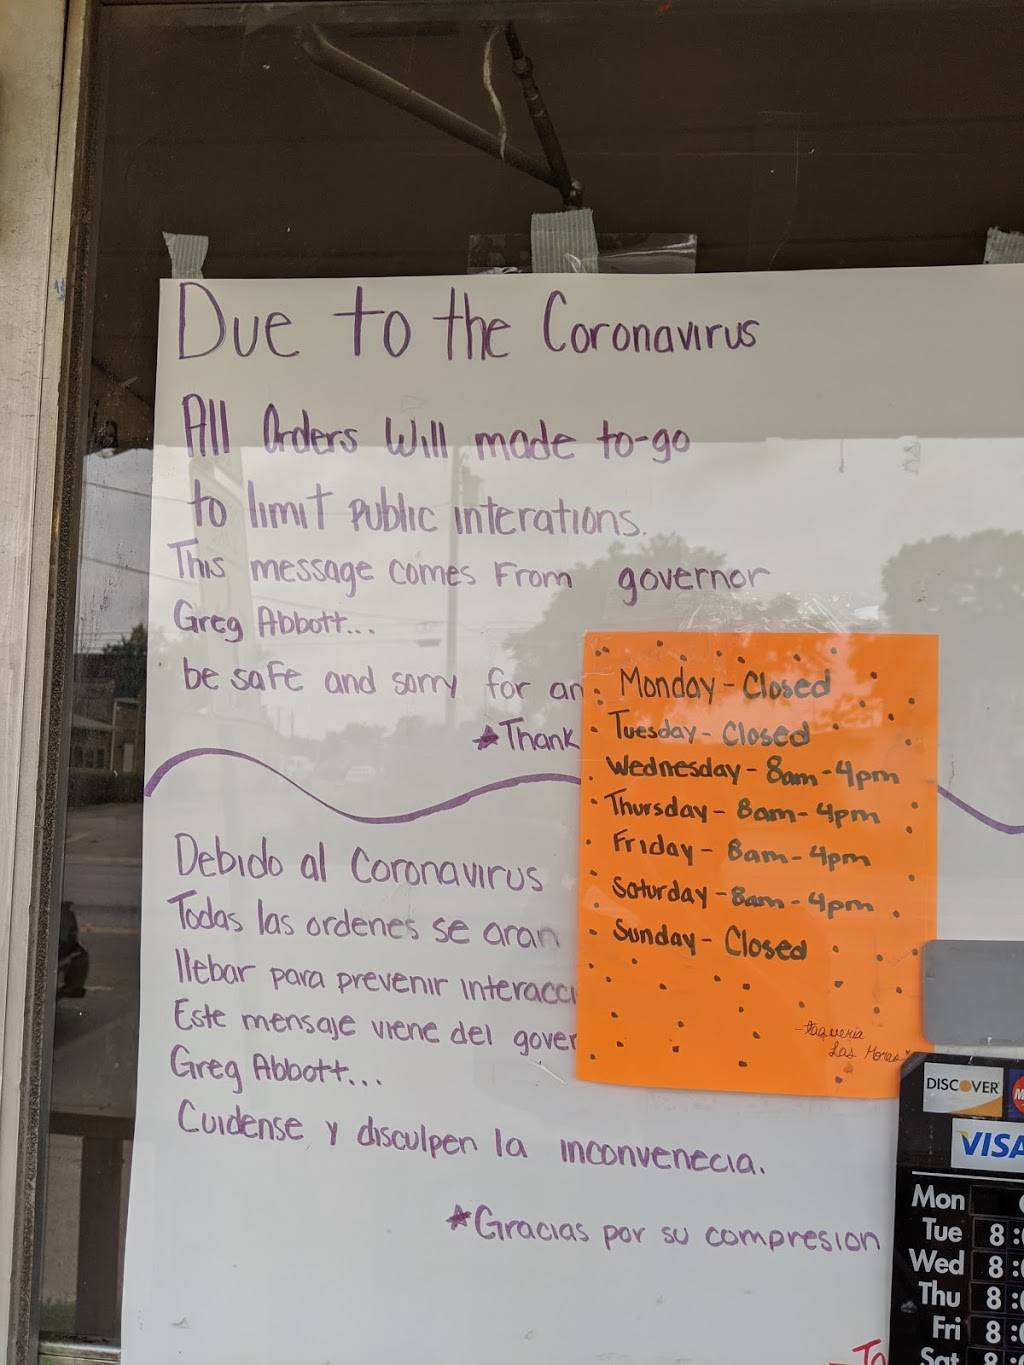 Due to the Coronavirus
All Orders Will made to-go
to limit public interations.
This message comes From governor
Greg Abbott...
be safe and sorry for an
*Thank
Debido al Coronavirus
Todas las ordenes se aran
llebar para prevenir interacci
Este mensaje viene del gover
Greg Abbott...
Cuidense y disculpen la inconvenecia.
*Gracias por su compresion
Monday - Closed
Tuesday - Closed
Wednesday - 8am - 4pm
Thursday - 8am - 4pm
Friday - 8am - 4pm
Saturday - 8am - 4pm
Sunday - Closed
-taqueria
Las Moras
DISCOVER
VISA
Mon
Tue 8:
Wed 8:
Thu 8:
Fri 8:
Sat 8:
-To